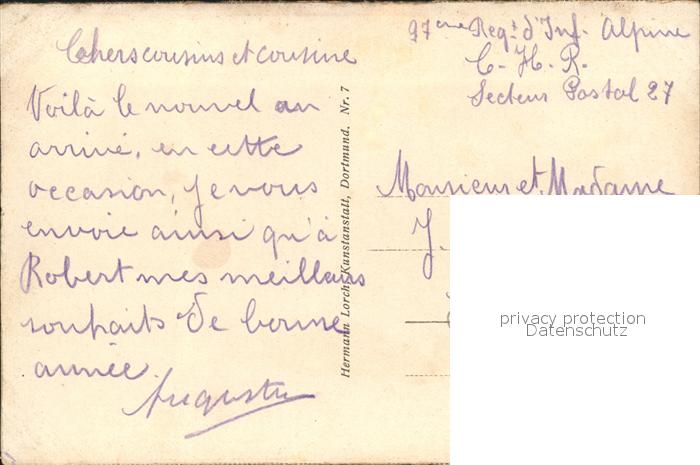 Chers cousins et cousine
Voilà le nouvel an
arrivé, en cette
occasion, je vous
envoie ainsi qu'à
Robert mes meilleurs
souhaits de bonne
année.
Auguste
Hermann Lorch, Kunstanstalt, Dortmund. Nr. 7
97eme Regt d'Inf. Alpine
C. H. R.
Secteur Postal 27
Monsieur et Madame
J.
privacy protection
Datenschutz